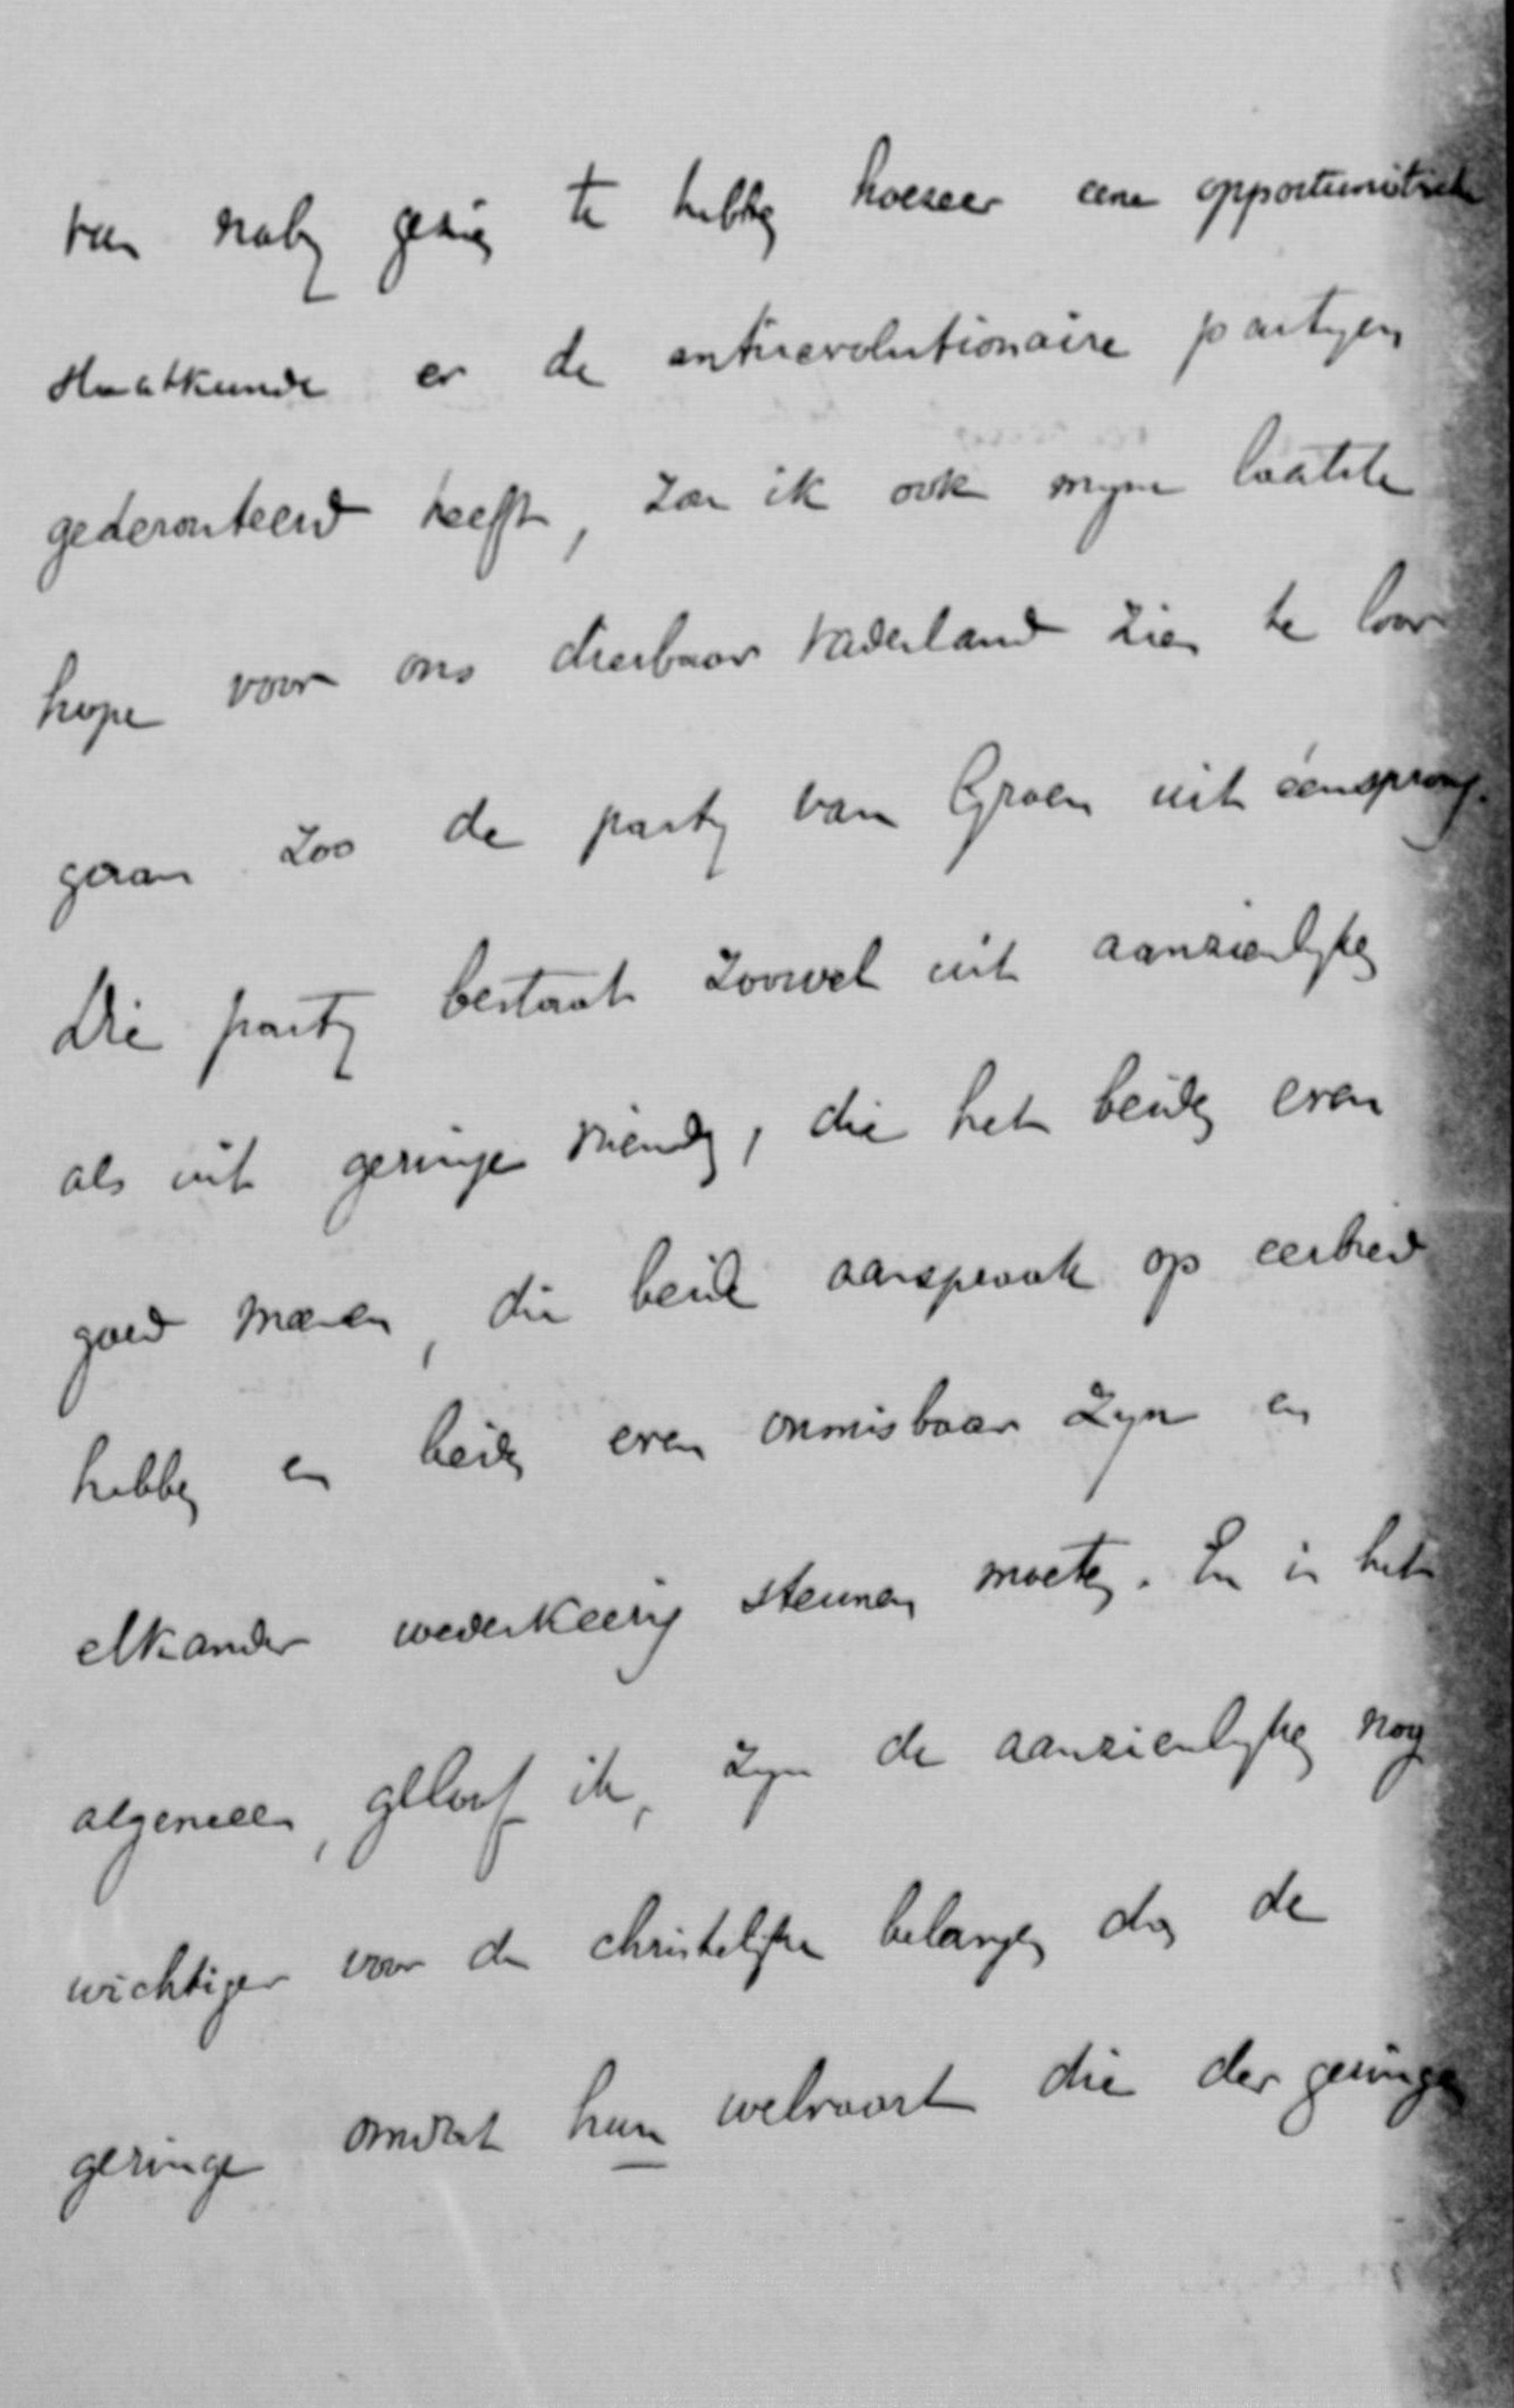 van naby gezien te hebben hoezeer eene opportunistische
staatkunde er de antirevolutionaire partyen
gederouteerd heeft, zou ik ook myne laatste
hope voor ons dierbaar vaderland zien te loor
gaan zoo de party van Groen uit éénsprong.
Die party bestaat zoowel uit aanzienlyken
als uit geringe vrienden, die het beiden even
goed meenen, die beide aanspraak op eerbied
hebben en beiden even onmisbaar zyn en
elkander wederkeerig steunen moeten. En in het
algemeen, geloof ik, zyn de aanzienlyken nog
wichtiger voor de christelyke belangen dan de
geringe omdat hun welvaart die der geringen